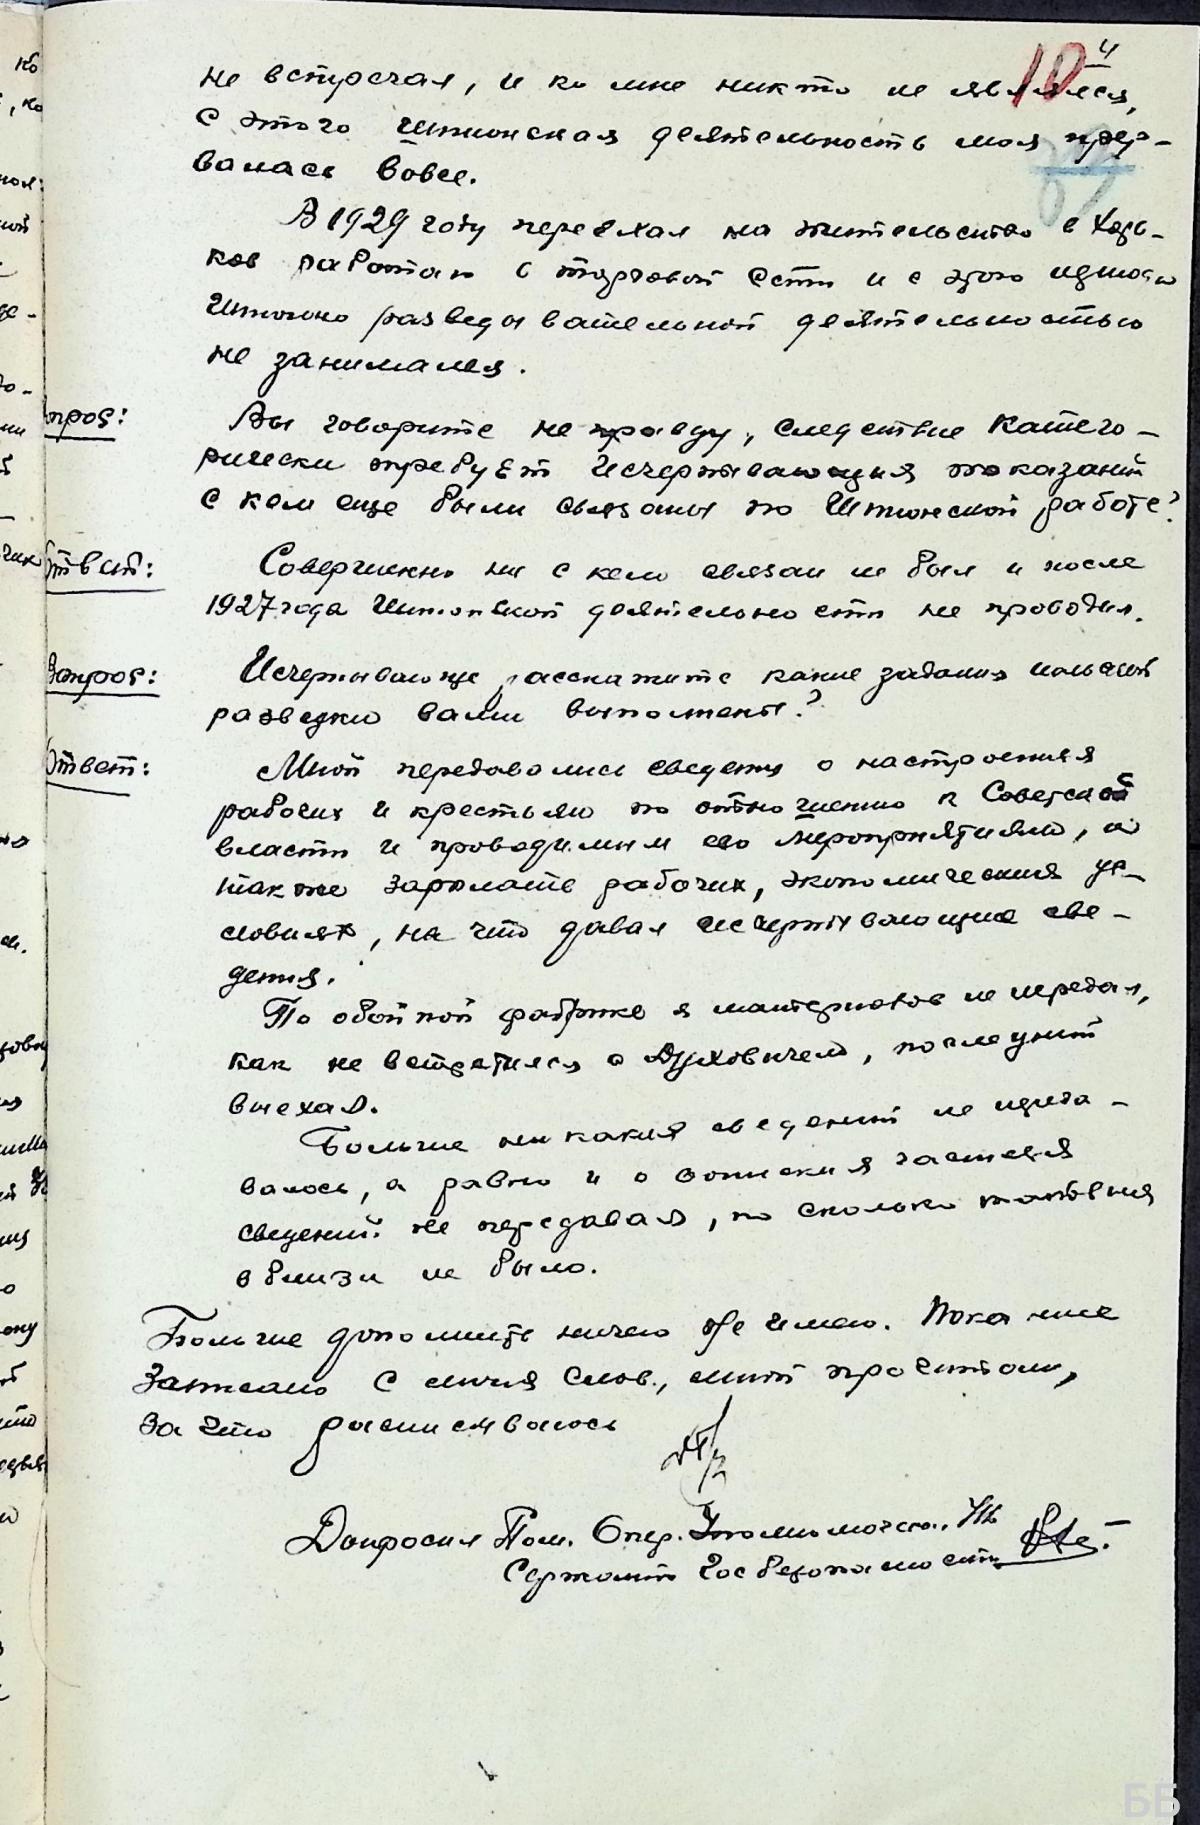 4
10
не встречал, и ко мне никто не являлся,
с этого шпионская деятельность моя прер-
валась вовсе.
В 1929 году переехал на жительство в Харь-
ков работал в торговой сети и с этого
шпионо разведывательной деятельностью
не занимался.
Вопрос: Вы говорите не правду, следствие катего-
рически требует исчерпывающих показаний
с кем еще были связаны по шпионской работе?
Ответ: Совершенно ни с кем связан не был и после
1927 года шпионской деятельности не проводил.
Вопрос: Исчерпывающе расскажите какие задания польской
разведки вами выполнены?
Ответ: Мной передавались сведения о настроениях
рабочих и крестьян по отношению к Советской
власти и проводимым ею мероприятиям, а
также зарплате рабочих, экономических ус-
ловиях, на что давал исчерпывающие све-
дения.
По обойной фабрике я материалов не передал,
как не встретился с Духовичем, последний
выехал.
Больше никаких сведений не преда-
валось, а равно и о воинских частях
сведений не передавал, по сколько таковых
вблизи не было.
Больше дополнить ничего не имею. Показание
записано с моих слов, мной прочитано,
за что расписываюсь
Допросил Пом. Опер. Уполномочен.
Сержант Госбезопасности
ББ